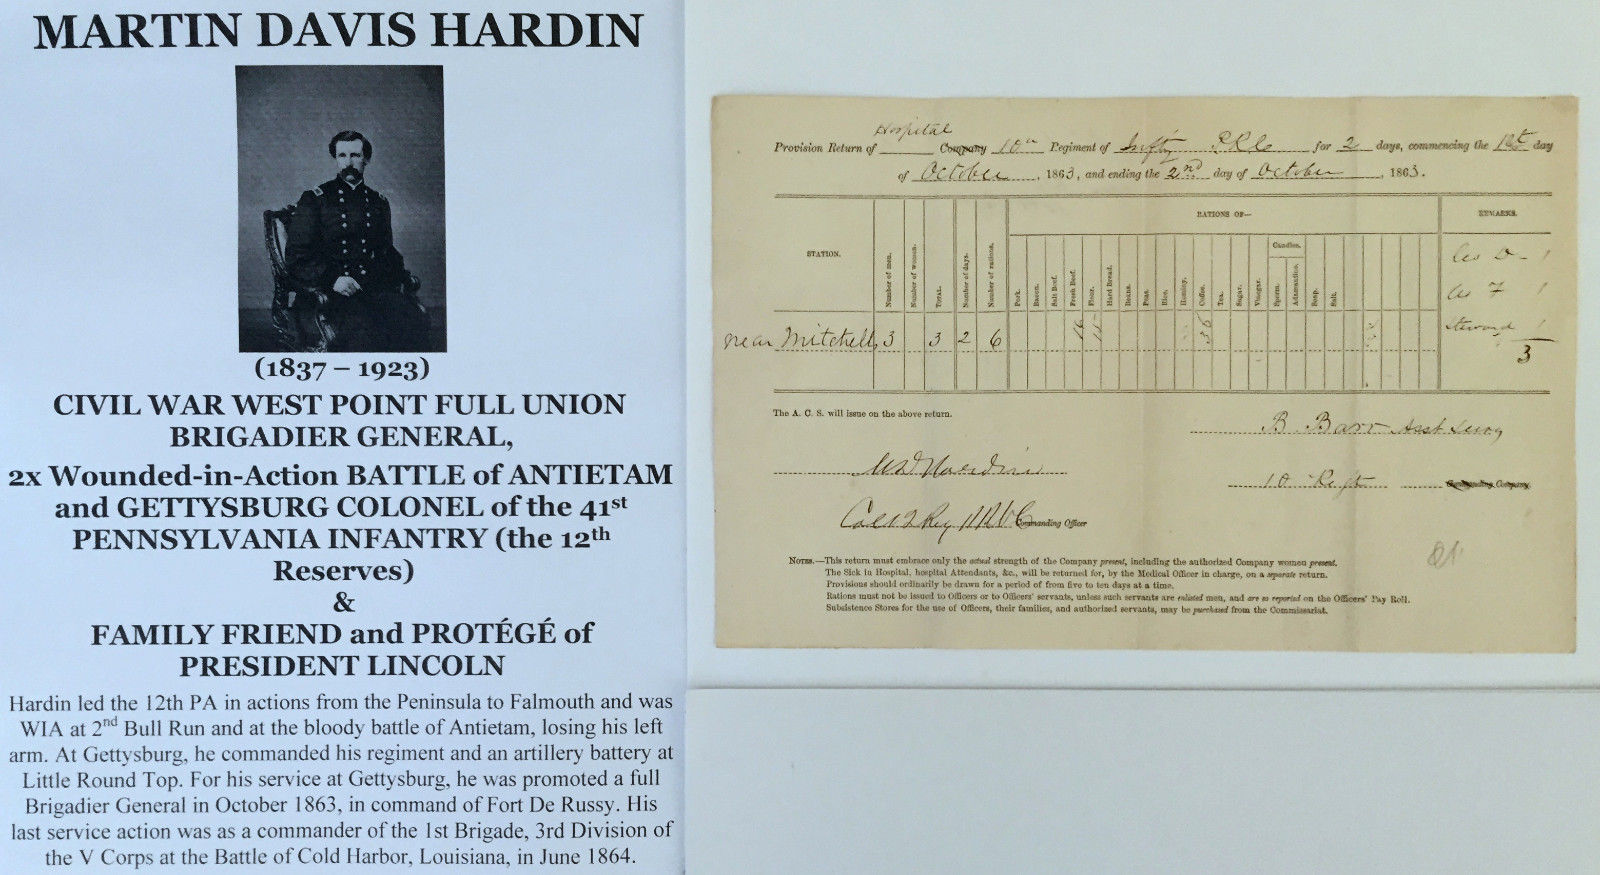 MARTIN DAVIS HARDIN
(1837 – 1923)
CIVIL WAR WEST POINT FULL UNION
BRIGADIER GENERAL,
2x Wounded-in-Action BATTLE of ANTIETAM
and GETTYSBURG COLONEL of the 41st
PENNSYLVANIA INFANTRY (the 12th
Reserves)
&
FAMILY FRIEND and PROTÉGÉ of
PRESIDENT LINCOLN
Hardin led the 12th PA in actions from the Peninsula to Falmouth and was
WIA at 2nd Bull Run and at the bloody battle of Antietam, losing his left
arm. At Gettysburg, he commanded his regiment and an artillery battery at
Little Round Top. For his service at Gettysburg, he was promoted a full
Brigadier General in October 1863, in command of Fort De Russy. His
last service action was as a commander of the 1st Brigade, 3rd Division of
the V Corps at the Battle of Cold Harbor, Louisiana, in June 1864.
Hospital
Provision Return of Company 10th Regiment of Infty for 2 days, commencing the 1st day
of October, 1863, and ending the 2nd day of October, 1863.
STATION.
Number of men.
Number of women.
Total.
Number of days.
Number of rations.
RATIONS OF—
Pork.
Bacon.
Salt Beef.
Fresh Beef.
Flour.
Hard Bread.
Beans.
Peas.
Rice.
Hominy.
Coffee.
Tea.
Sugar.
Vinegar.
Candles.
Sperm.
Adamantine.
Soap.
Salt.
REMARKS.
Co D - 1
Co F 1
Steward 1
3
near Mitchells 3 3 2 6
The A. C. S. will issue on the above return.
B. Barr Asst Surg
M D Hardin
10 Regt Commanding Company.
Col 12 Reg PRVC Commanding Officer
NOTES.—This return must embrace only the actual strength of the Company present, including the authorized Company women present.
The Sick in Hospital, hospital Attendants, &c., will be returned for, by the Medical Officer in charge, on a separate return.
Provisions should ordinarily be drawn for a period of from five to ten days at a time.
Rations must not be issued to Officers or to Officers' servants, unless such servants are enlisted men, and are so reported on the Officers' Pay Roll.
Subsistence Stores for the use of Officers, their families, and authorized servants, may be purchased from the Commissariat.